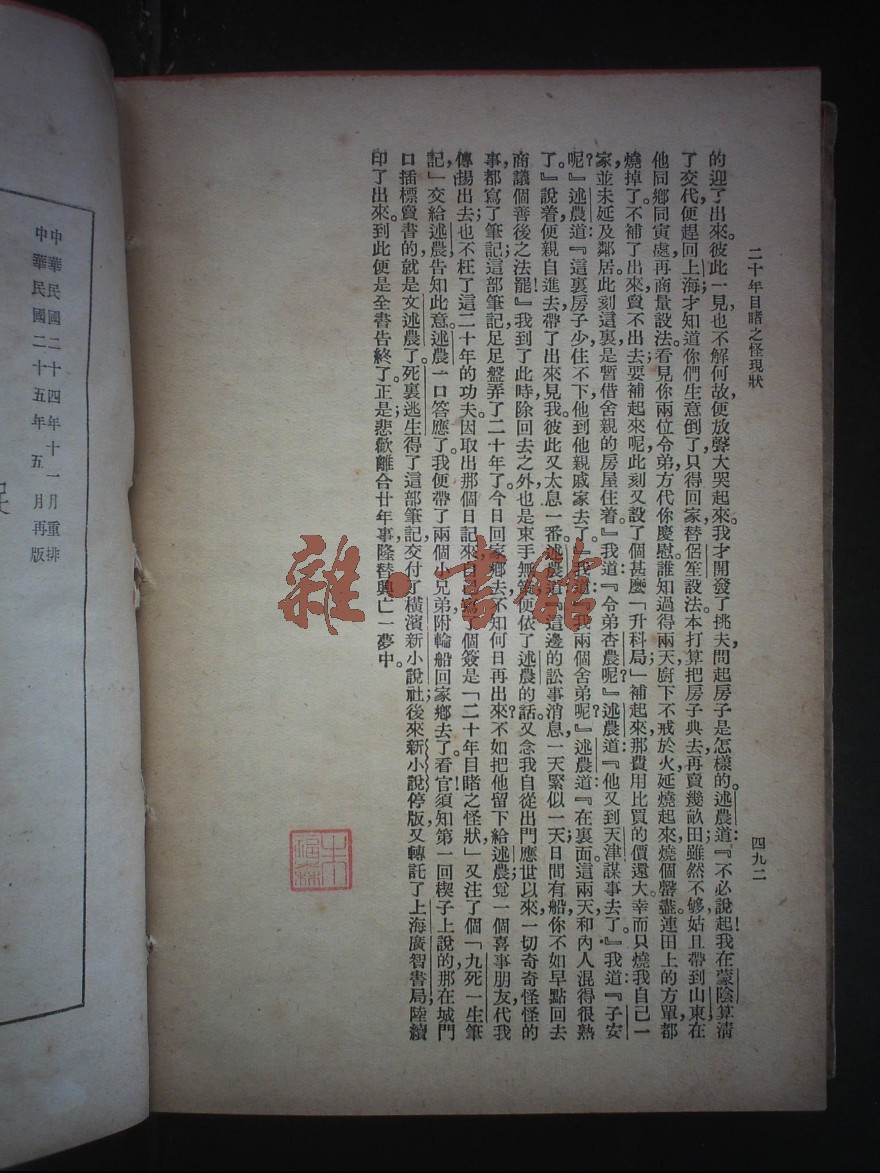 二十年目睹之怪現狀
四九二
的迎了出來。彼此一見，也不解何故，便放聲大哭起來。我才開發了挑夫，問起房子是怎樣的。述農道：『不必說起！我在蒙陰算清
了交代，便趕回上海；才知道你們生意倒了，只得回家替侶笙設法。本打算把房子典去，再賣幾畝田，雖然不够，姑且帶到山東，在
他同鄉同寅處再商量設法。看見你兩位令弟，方代你慶慰。誰知過得兩天，廚下不戒於火，延燒起來，燒個罄盡。連田上的方單都
燒掉了。不補了出來，賣不出去；要補起來呢，此刻又設了個甚麽「升科局」，補起來，那費用比買的價還大。幸而只燒我自己一
家，並未延及鄰居。此刻這裏是暫借舍親的房屋住着。』我道：『令弟杏農呢？』述農道：『他又到天津謀事去了。』我道：『子安
呢？』述農道：『這裏房子少，住不下，他到他親戚家去了。』我道：『我兩個舍弟呢？』述農道：『在裏面。這兩天和內人混得很熟
了。』說着，便親自進去，帶了出來見我。彼此又太息一番。述農道：『這邊的訟事消息，一天緊似一天；日間有船，你不如早點回去
商議個善後之法罷！』我到了此時，除回去之外，也是束手無策，便依了述農的話。又念我自從出門應世以來，一切奇奇怪怪的
事，都寫了筆記；這部筆記足足盤弄了二十年了。今日回家鄉去，不知何日再出來？不如把他留下給述農，覓一個喜事朋友，代我
傳揚出去；也不枉了這二十年的功夫。因取出那個日記來，自己寫了個簽，是「二十年目睹之怪狀」，又注了個「九死一生筆
記」，交給述農，告知此意。述農一口答應了。我便帶了兩個小兄弟，附輪船回家鄉去了。看官！須知第一回楔子上說的，那在城門
口插標賣書的，就是文述農了。死裏逃生得了這部筆記，交付了橫濱新小說社；後來新小說停版，又轉託了上海廣智書局，陸續
印了出來。到此便是全書告終了。正是：悲歡離合廿年事，隆替興亡一夢中。
雜·書館
朱福森
中華民國二十四年十一月重排
中華民國二十五年五月再版